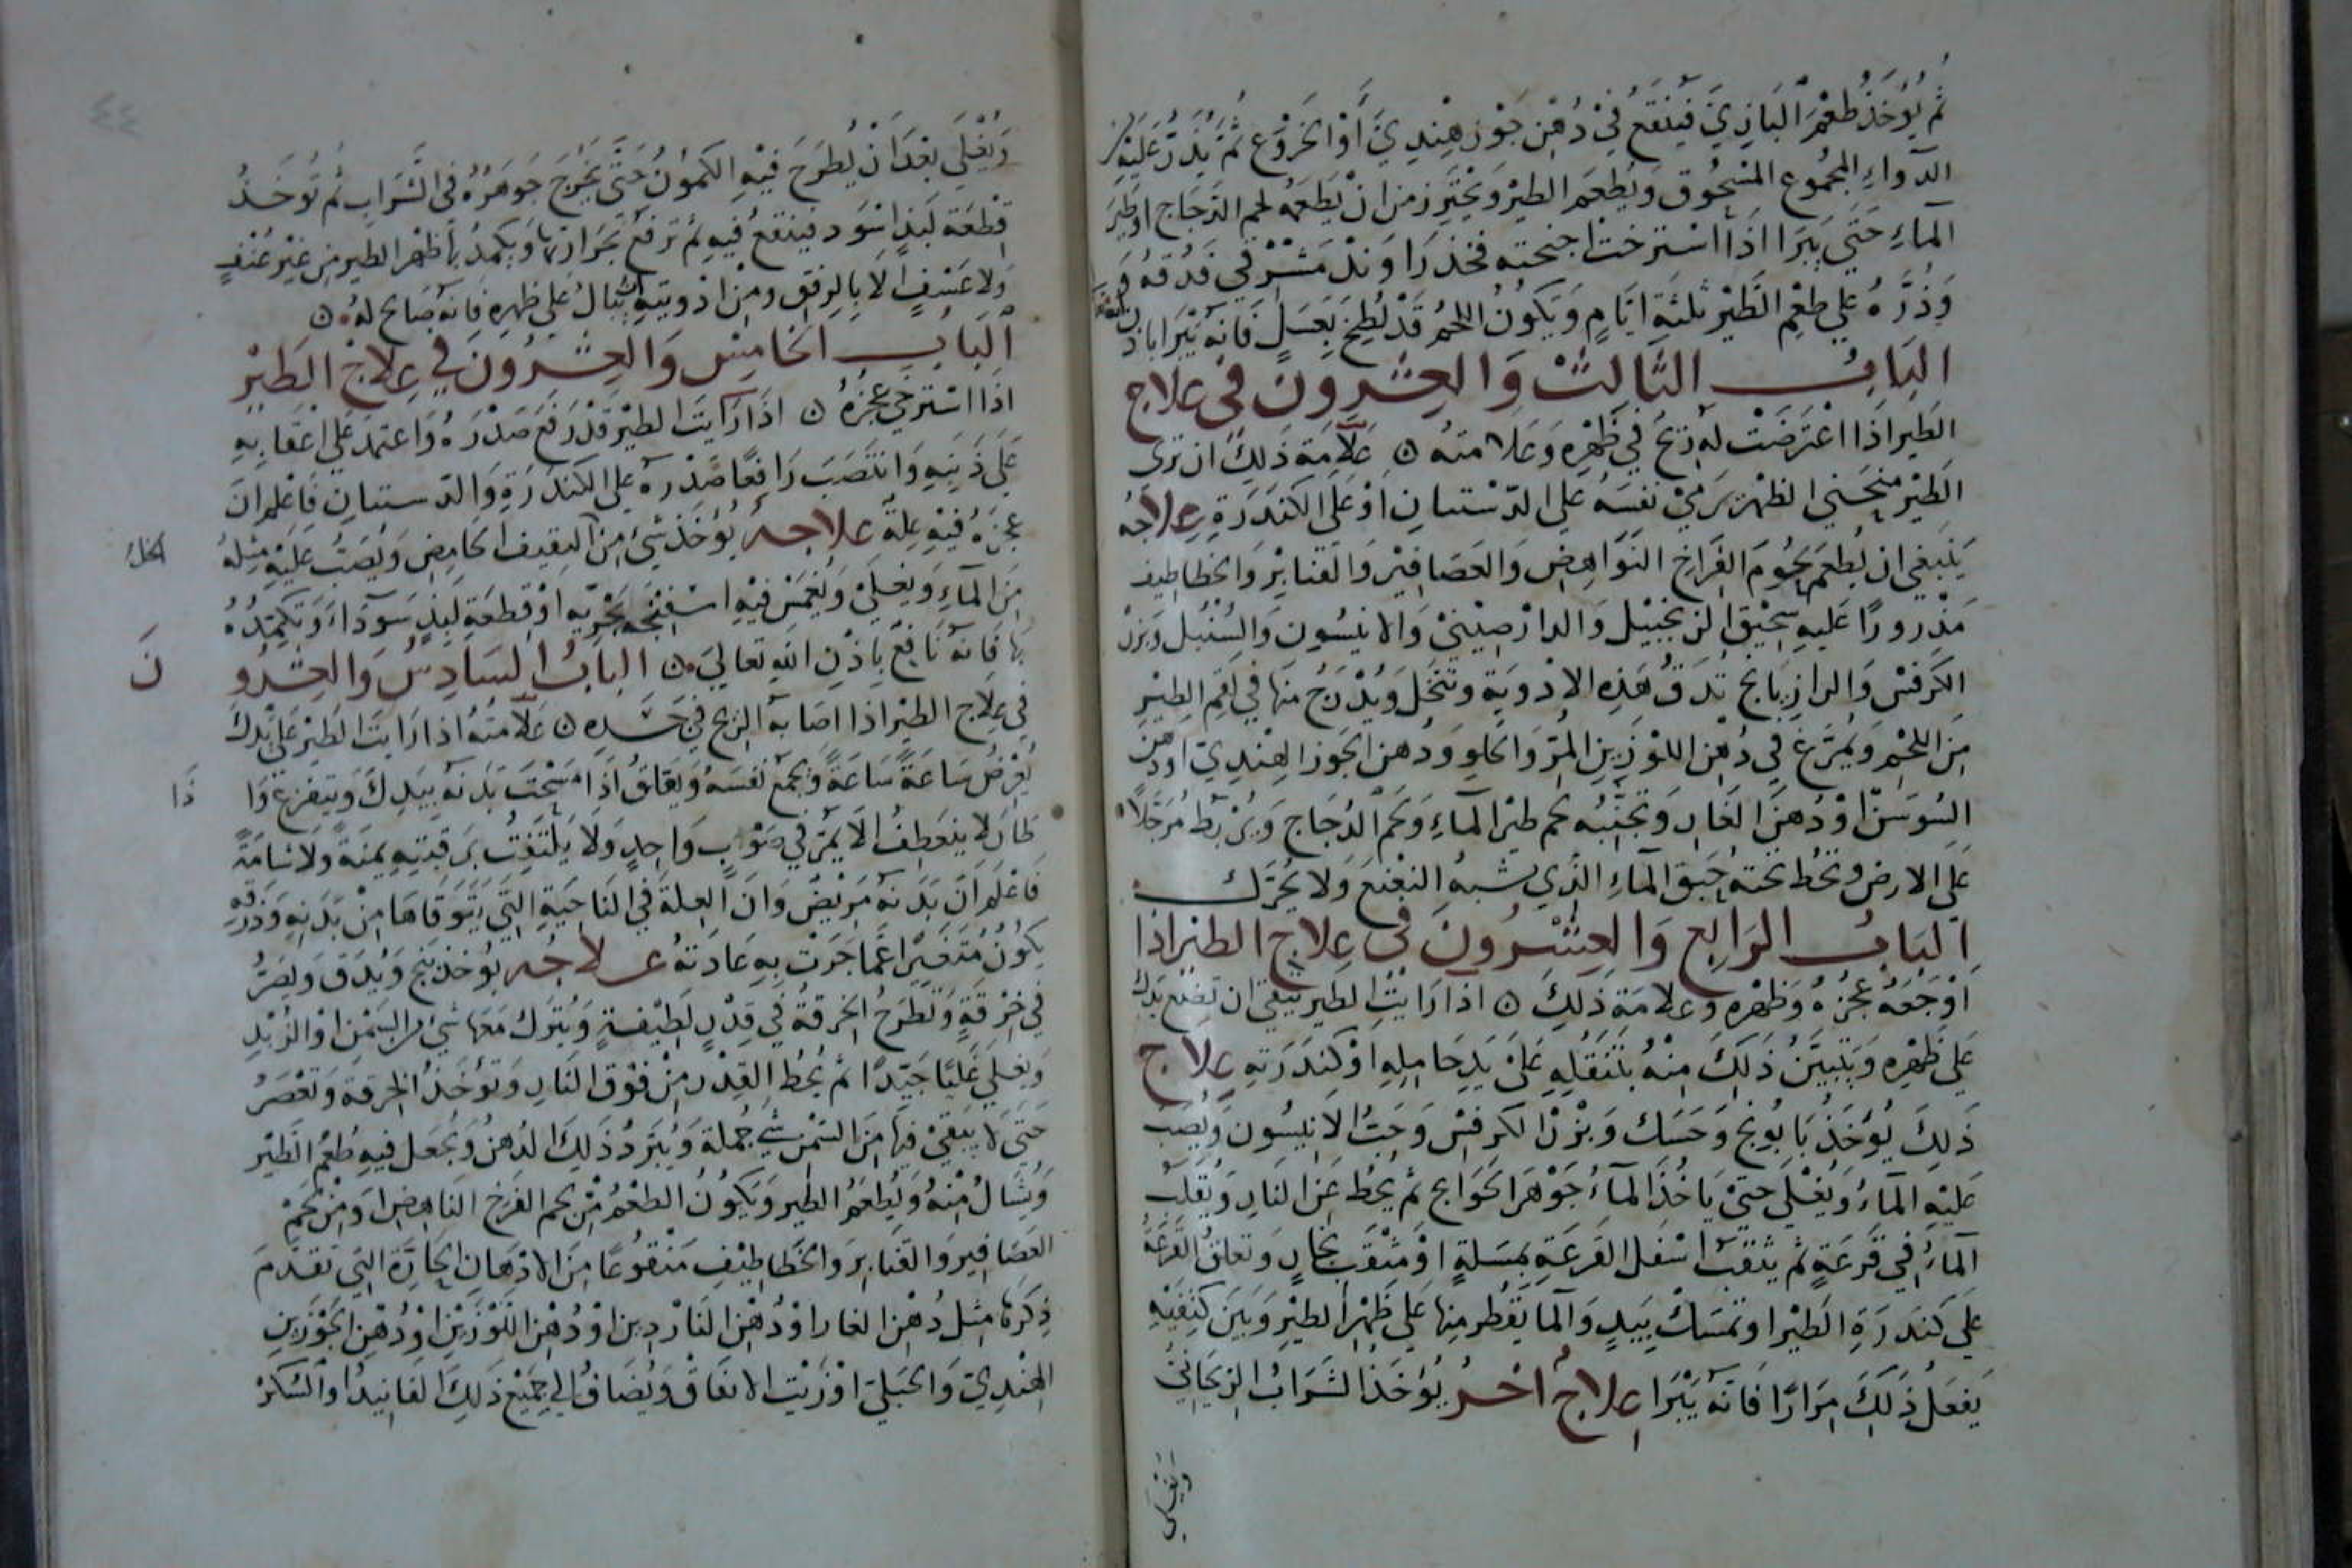 ثُمَّ يُؤخَذُ طُعْمَ البَازِيِّ فَيُنْقَعُ فِي دُهْنِ جَوْزِ هِنْدِيٍّ أَوْ الخَرْوَعِ ثُمَّ يُذَرُّ عَلَيْهِ مِن
الدّواءِ المجْموعِ المسْحُوقِ وَيُطعَمِ الطيْرُ وَيُحْتَرز من انْ يُطعَمه لحم الدَجَاج اوْ طَيْر
المَاءِ حَتّي يَبرَا اذَا اسْتَرختْ اجنحته فخذ رَاوَنْدْ مَشْرقي فَدُقّهُ وَ
وَذُرَّهُ علي طعْمِ الطَيْرِ ثلثَةِ ايّامٍ وَيَكُونُ اللحْمُ قَدْ لُطِخَ بِعَسَلٍ فَانهُ يَبْرَا باذن الله
البَابُ الثَّالِثُ وَالعِشْرونَ فِي عِلَاج
الطَيرِ اذَا اعْتَرَضَتْ لَهُ رِيحٌ فِي ظَهْرِهِ وَعَلامتهُ ن عَلَامَة ذَلِكَ ان تري
الطَيْرَ منحَني الظهْر يَرمِيْ نفسَهُ عَلي الدّسْتبانِ اوْ عَلَى الكندَرَةِ عِلاجُهُ
يَنبَغي ان يُطعَم لحُومَ الفَرَاخِ النَوَاهِضِ وَالعَصَافيْرِ وَالقنابْرِ وَالخطاطيف
مَذْرورًا عَليهِ سَحِيْقَ الزنجَبْيل وَالدارْصِيْنيْ وَالانيسُونِ وَالسُنْبُل وَبزْر
الكَرَفسْ وَالرازِيَانج تُدَقُّ هَذِهِ الادْوِيَةِ وَتنْخَل وَيُدْرَجُ منهَا في لقم الطيْرِ
مِنَ اللحْمِ وَيُمَرَّغُ فِي دُهْنِ اللوْزَيْنِ المُرّ وَالحلوِ وَدُهن الجَوز الهِنْدِيّ اوْ دهن
السُوسَنْ اوْ دُهنَ الغَارِ وَتجَنّبُه لحم طيْرِ المآءِ وَلحمَ الدُجَاج وَيُربَط مُرَجَّلًا
عَلي الارضِ وَتحُط تحتهُ حَبَق المآءِ الذَي يشبهُ النعْنعَ وَلا يُحَرَّك
البَابُ الرَابِع وَالعِشْرُونَ فِي عِلاجِ الطَيْرِ اذَا
اوْجَعَهُ عجُزهُ وَظَهْره وَعَلامَة ذَلِكَ ن اذَا رَايْتَ الطَير يَتّقي ان تضَع يَدَك
عَلي ظَهْرِه وَيَتَبيّنُ ذَلِكَ مِنْهُ بِتَنَقُّلِهِ عَليْ يَدِ حَامِلِهِ اوْ كندَرَتهِ عِلاج
ذَلِكَ يُؤخَذُ بَابُونج وَحَسَك وَبزْرُ الكَرفسْ وَحَبُّ الانيسُون وَيُصَبّ
عَليْهِ المآءُ وَيُغْلَي حَتيْ يَاخُذَ المآءُ جَوْهَرَ الحوَايج ثُم يُحَط عَن النَارِ وَيُقلَب
المآءُ في قَرعَةٍ ثُم يثقبُ اسْفل القَرعَةِ بمسَلةٍ اوْ مِثْقَب نجارٍ وَتعلقُ القَرعَة
عَلي كندَرَةِ الطَيْر اوْ تمسَكْ بيَدٍ وَالما يَقطر منها عَلي ظَهْر الطيْرِ وَبَيْنَ كتِفَيْهِ
يَفعَلُ ذَلِكَ مِرَارًا فَانهُ يَبْرَا عِلاجٌ اخرُ يُؤخَذُ الشرَابُ الريحَانيُّ
وَيُغلي
٤٤
وَيُغْلَي بَعْدَانْ يُطرَحَ فِيْهِ الكمُونُ حَتَّى يَخْرُجَ جَوهَرُهُ في الشَرَاب ثم تؤخَذُ
قطْعَة لبَدٍ اسْوَد فينقعُ فيهِ ثم ترفعْ بحَرَارتها وَيكمدُ بهَا ظهر الطير من غيْر عُنْفٍ
وَلا عَسْفٍ الَا بالرِفق ومن ادْويتهِ يُبَالُ عَلي ظهرهِ فَانهُ صَالح لهُ ن
البَابُ الخَامِسُ وَالعِشرُونَ في عِلاجْ الطَيْرِ
اذا اسْترخي عجُزهُ ن اذَا رَايتَ الطيْرَ قدْ رَفعَ صَدْرَهُ وَاعتمدَ عَلي اعقابهِ
عَلي ذَنبهِ وَانتصَبَ رَافعًا صَدْرهُ عَلي الكندَرَةِ وَالدستبانِ فَاعْلم ان
عجزهُ فيْهِ عِلةً علاجهُ يُؤخَذُ شَيْ مِنَ الثقيف الحامِضِ وَيُصَبُّ عَليْهِ مِثلهُ
الخل
مِنَ المآءِ وَيغليْ وَيُغْمَسْ فيْهِ اسْفِنجه بَحْرِيّه اوْ قطعَة لبَدٍ سَودَاءَ وَتكمدُهُ
بهَا فَانهُ نَافعٌ بِاذْنِ اللهِ تعالي ن البَابُ السَادِسُ وَالعِشْرُونَ
في عِلاج الطيْرِ اذَا اصَابهُ الريح في جَسَدِهِ ن عَلامَتُهُ اذَا رَايتَ الطَيْر عَلي يَدِكَ
يُعْرِضُ سَاعَةً سَاعَةً وَيجمَع نفسَهُ وَيَقلقُ اذَا مَسَحْتَ بَدَنهُ بِيَدِكَ وَيتفزع وَاذَا
طَارَ لا ينعَطِفُ الا يمُرّ في صَوْبٍ وَاحِدٍ وَلَا يَلتفِتُ برَقبتِهِ يمنَةً وَلا شامَةً
فَاعْلَم اَنّ بَدَنهُ مَريضٌ وَانَّ العِلة في الناحِيَةِ التي يَتَوَقاهَا مِنْ بَدَنِهِ وَذرقه
يَكونُ مُتغيّرا عَمّا جَرَتْ بِهِ عَادَتهُ عِلاجُه يُؤخَذ بنج وَيُدَق وَيصَرُّ
فِي خِرْقةٍ وَتطرَحُ الخرقةُ في قِدْرٍ لَطِيْفةٍ وَيُترَك مَعَها شيْ من السَمْن اوْ الزُبْدِ
وَيغلي غَليًا جَيّدًا ثم يُحُط القِدْرَ مِنْ فوْق النَارِ وَتؤخَذُ الخِرقة وَتعْصَرُ
حَتّى لا يَبْقيْ فيهَا مِنَ السَمْن شيْ جُملة وَيُبَرّدُ ذَلِكَ الدُهنُ وَيجُعَل فيهِ طُعْمُ الطَيْر
وَيُشَالُ مِنْهُ وَيُطعَمُ الطَيرُ وَيَكونُ الطعْمُ مِنْ لحم الفَرخ النَاهِضِ اوَ مِنْ لحَمْ
العَصَافير وَالقنابرَ وَالخَطاطِيْفِ مَنْقوعًا مِنَ الادْهَانِ الحَارّة التي تقدّمَ
ذِكرهَا مِثل دُهْن الغار اوْ دُهْن النَارْدِين اوْ دُهْن اللوْزَيْنِ اوْ دُهْنِ الجوْزَينِ
الهنْدِيّ وَالجَبَليّ اوْ زَيْت الانفاقْ وَيُضَافُ اليِ جميْع ذَلِكَ الفَانيدُ اوْ السُكَرْ